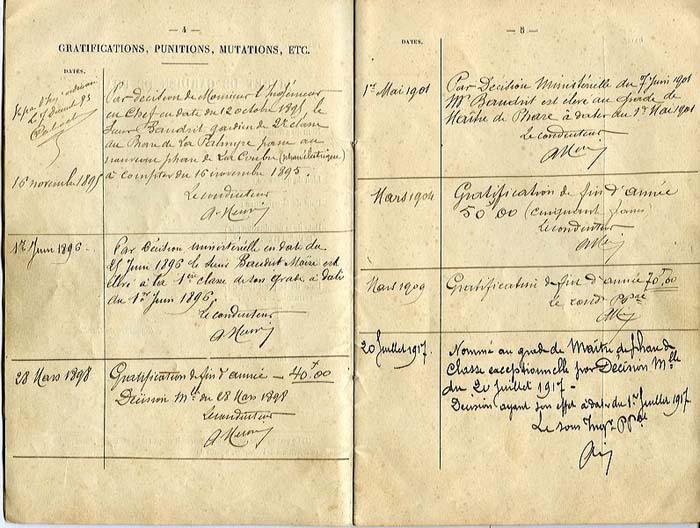 — 4 —
GRATIFICATIONS, PUNITIONS, MUTATIONS, ETC.
DATES.
16 novembre 1895
Par décision de Monsieur l'Ingénieur
en Chef en date du 12 octobre 1895, le
Sieur Baudrit gardien de 2e classe
du Phare de La Palmyre passe au
nouveau phare de La Coubre (phare électrique)
à compter du 16 novembre 1895.
Le conducteur
1er Juin 1896.
Par Décision ministérielle en date du
25 Juin 1896 le Sieur Baudrit Moïse est
élevé à la 1ère classe de son grade à dater
du 1er Juin 1896.
Le conducteur
28 Mars 1898
Gratification de fin d'année — 40f00
Décision Mle du 28 Mars 1898
Le conducteur
— 5 —
DATES.
1er Mai 1901
Par Décision Ministérielle du 7 Juin 1901
Mr Baudrit est élevé au grade de
Maître de Phare à dater du 1er Mai 1901
Le conducteur
Mars 1904
Gratification de fin d'année
50f00 (cinquante francs)
Le conducteur
Mars 1909
Gratification de fin d'année 70f,00
Le condr Ppal
20 Juillet 1917.
Nommé au grade de Maître de phare de
classe exceptionnelle par Décision Mlle
du 20 Juillet 1917.
Décision ayant son effet à dater du 1er Juillet 1917
Le Sous Ingr Ppal